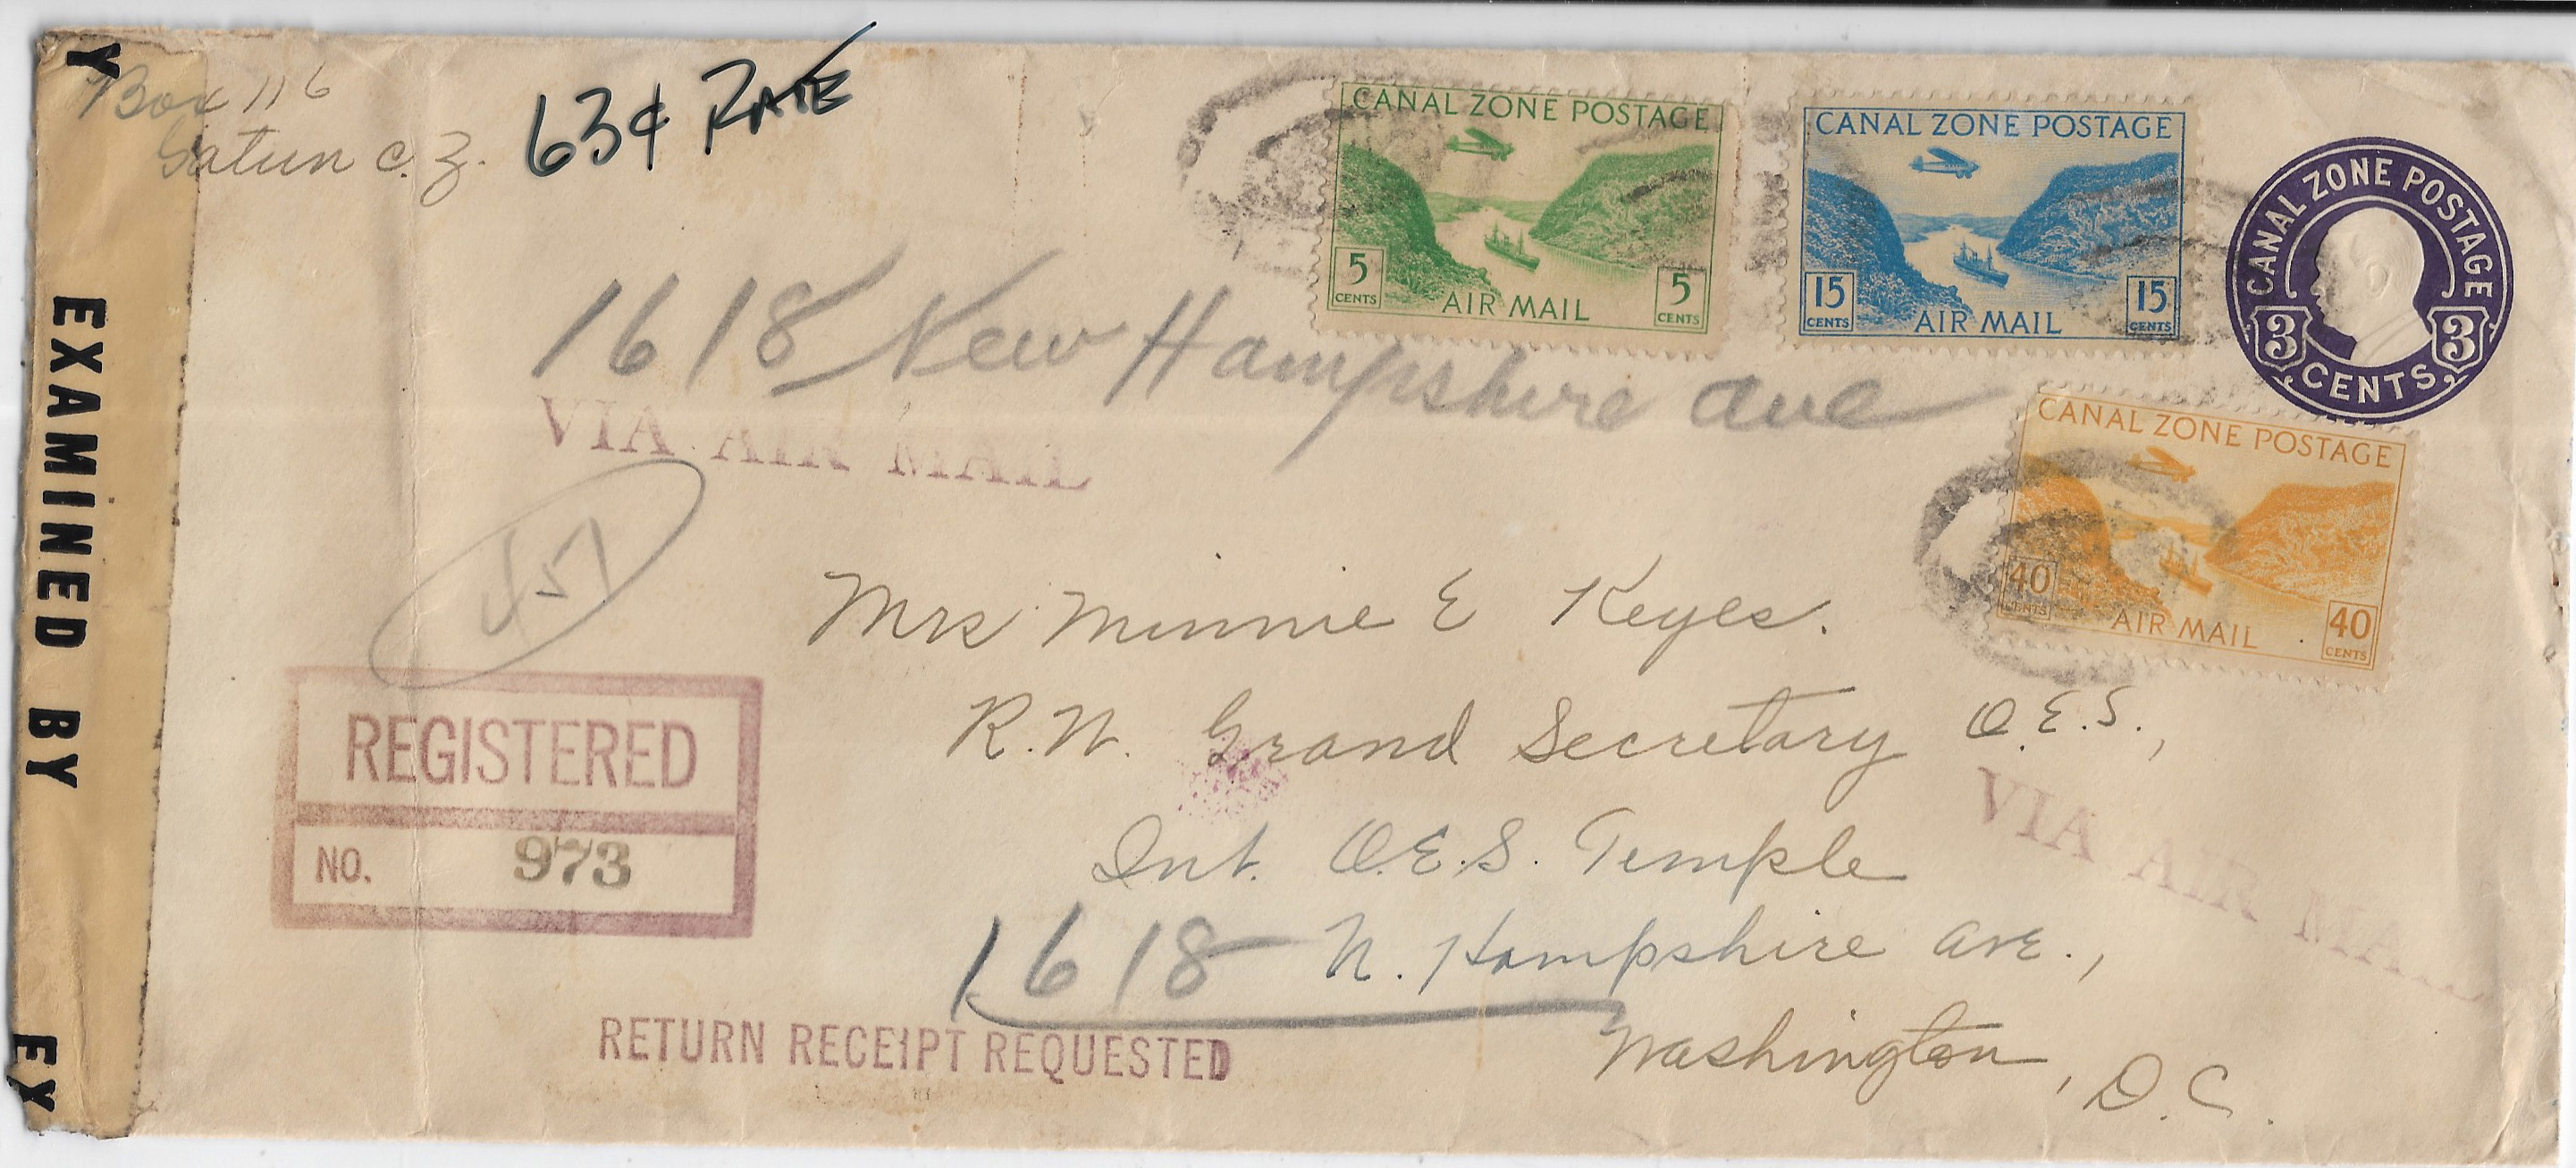 Y
EXAMINED BY
EX
Box 116
Gatun C.Z.
63¢ RATE
CANAL ZONE POSTAGE
5 CENTS
5 CENTS
AIR MAIL
CANAL ZONE POSTAGE
15 CENTS
15 CENTS
AIR MAIL
CANAL ZONE POSTAGE
3 3
CENTS
CANAL ZONE POSTAGE
40 CENTS
40 CENTS
AIR MAIL
1618 New Hampshire Ave
VIA AIR MAIL
457
Mrs Minnie E Keyes.
R.W. Grand Secretary O.E.S.,
Int. O.E.S. Temple
1618 N. Hampshire Ave.,
Washington, D.C.
VIA AIR MAIL
REGISTERED
NO. 973
RETURN RECEIPT REQUESTED